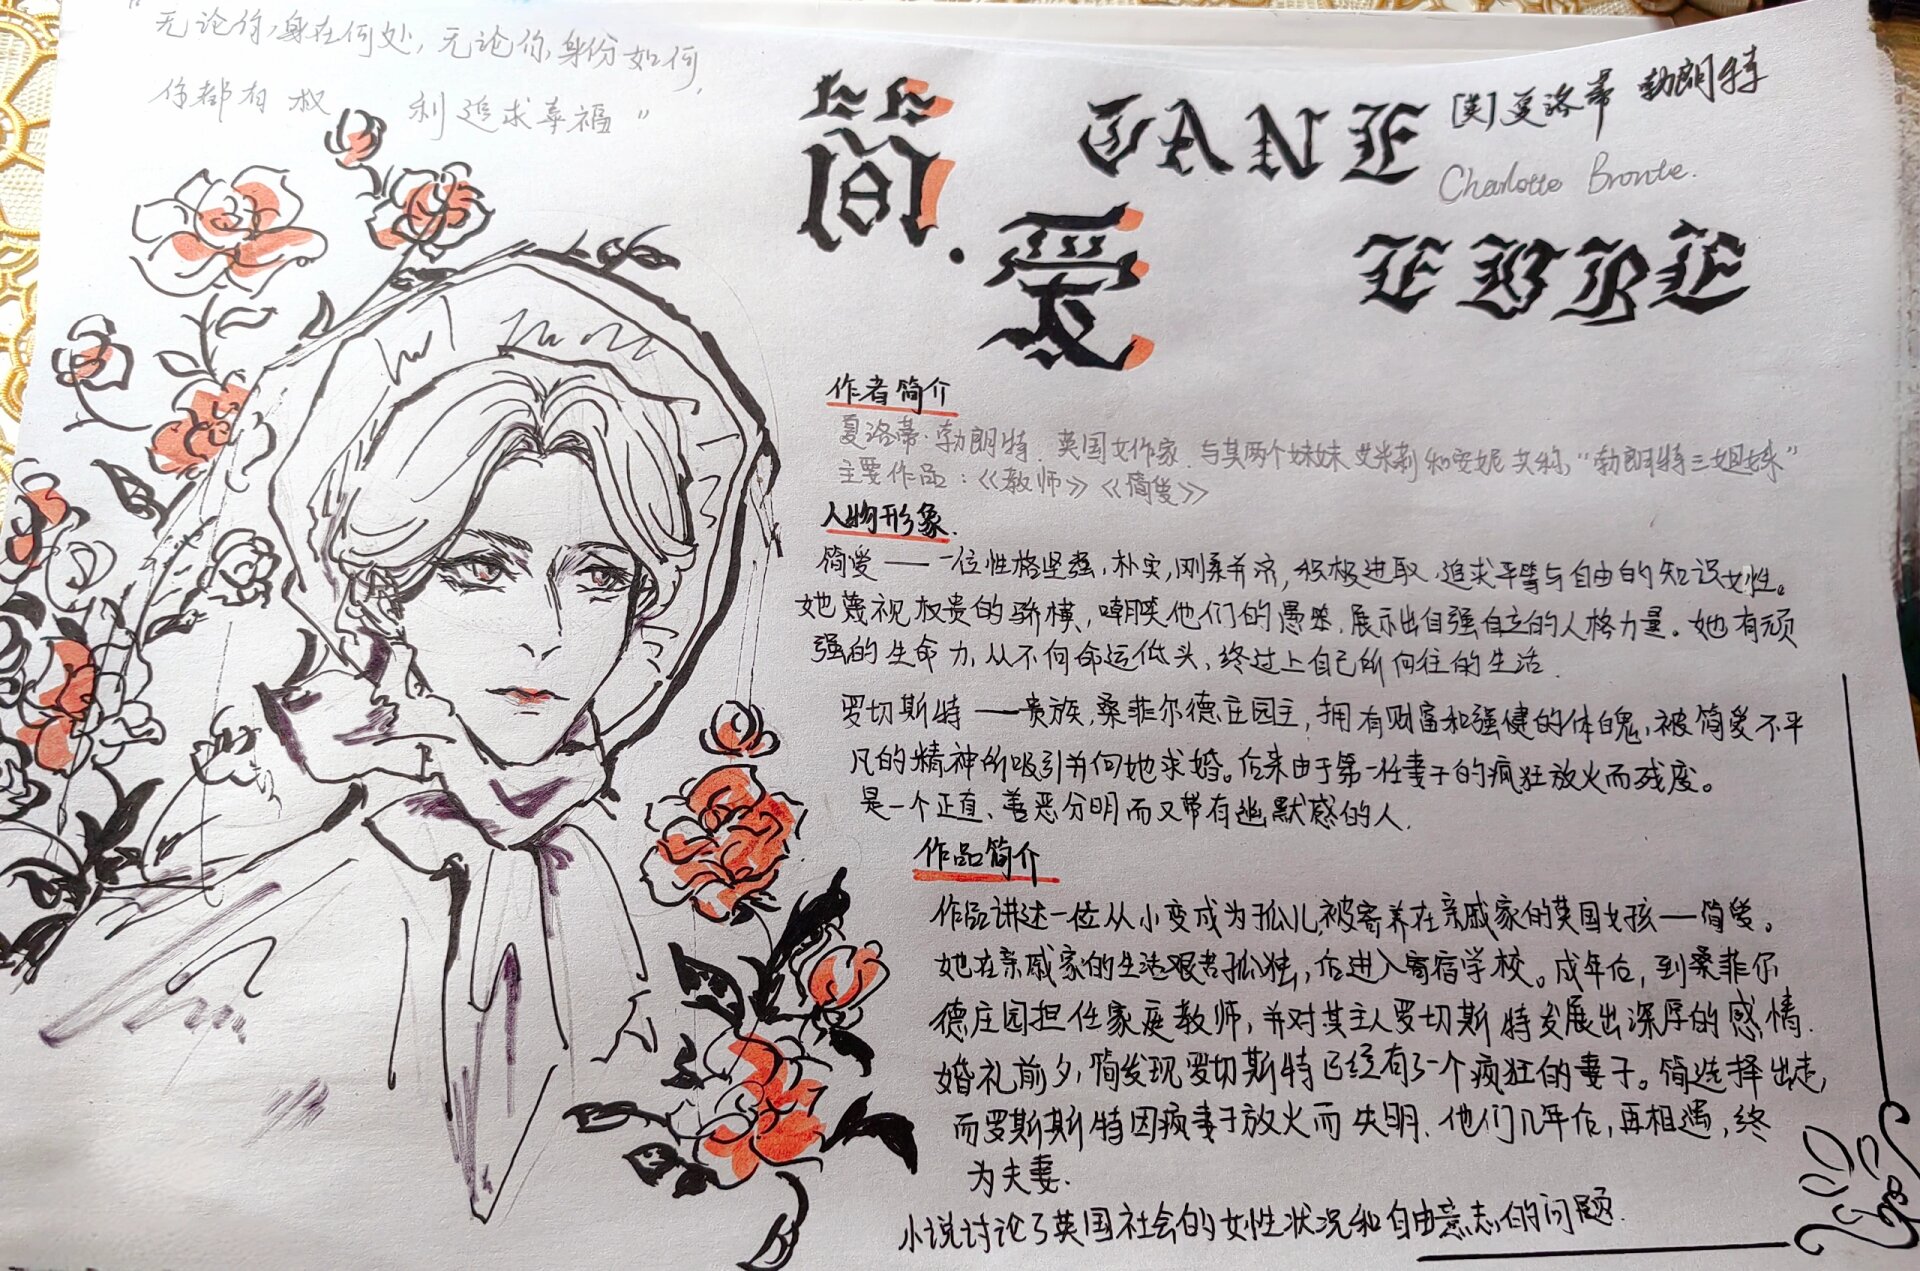 "无论你,身在何处,无论你,身份如何,
你都有权 利追求幸福"
简·爱
JANE
EYRE
[英]夏洛蒂 勃朗特
Charlotte Bronte.
作者简介
夏洛蒂·勃朗特.英国女作家.与其两个妹妹艾米莉和安妮共称,"勃朗特三姐妹"
主要作品:《教师》《简爱》
人物形象.
简爱——一位性格坚强,朴实,刚柔并济,积极进取,追求平等与自由的知识女性。
她蔑视权贵的骄横,嘲笑他们的愚笨,展示出自强自立的人格力量。她有顽
强的生命力,从不向命运低头,终过上自己所向往的生活.
罗切斯特——贵族,桑菲尔德庄园主,拥有财富和强健的体魄,被简爱不平
凡的精神所吸引并向她求婚。后来由于第一任妻子的疯狂放火而残废。
是一个正直、善恶分明而又带有幽默感的人.
作品简介
作品讲述一位从小变成为孤儿,被寄养在亲戚家的英国女孩——简爱。
她在亲戚家的生活艰苦孤独,后进入寄宿学校。成年后,到桑菲尔
德庄园担任家庭教师,并对其主人罗切斯特发展出深厚的感情.
婚礼前夕,简发现罗切斯特已经有了一个疯狂的妻子。简选择出走,
而罗斯斯特因疯妻子放火而失明.他们几年后,再相遇,终
为夫妻.
小说讨论了英国社会的女性状况和自由意志的问题.